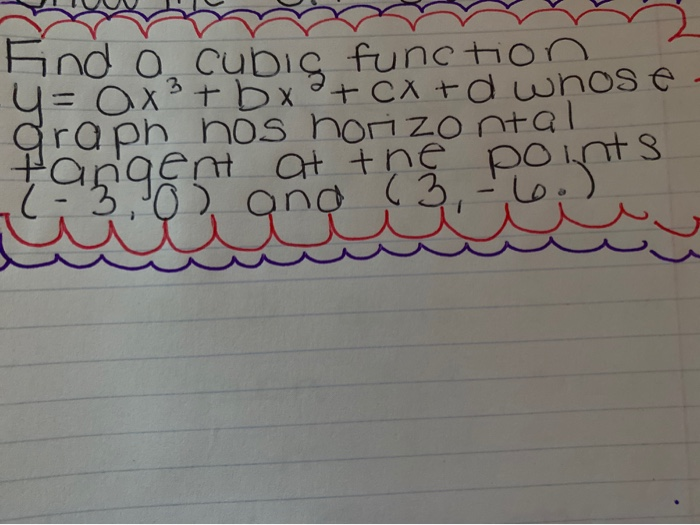 Find a cubic function
y = ax³ + bx² + cx + d whose
graph has horizontal
tangent at the points
(-3, 0) and (3, -6.)